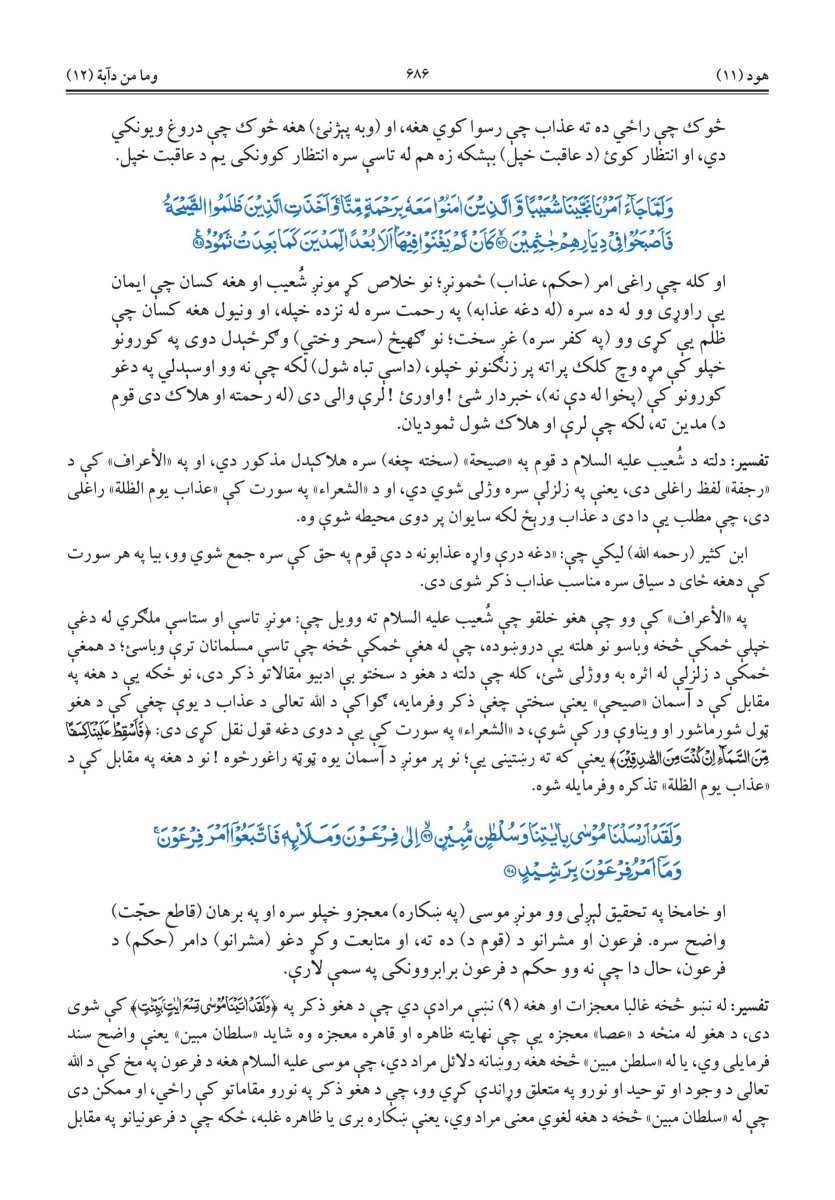 هود (۱۱) ۶۸۶ وما من دآبة (۱۲)
څوک چې راځي ده ته عذاب چې رسوا کوي هغه، او (وبه پېژنئ) هغه څوک چې دروغ ويونکي
دي، او انتظار کوئ (د عاقبت خپل) بېشکه زه هم له تاسې سره انتظار کوونکی يم د عاقبت خپل.
وَلَمَّا جَآءَ اَمْرُنَا نَجَّيْنَا شُعَيْبًا وَّالَّذِيْنَ اٰمَنُوْا مَعَهٗ بِرَحْمَةٍ مِّنَّا وَاَخَذَتِ الَّذِيْنَ ظَلَمُوا الصَّيْحَةُ
فَاَصْبَحُوْا فِيْ دِيَارِهِمْ جٰثِمِيْنَ ﴿۹۴﴾ كَاَنْ لَّمْ يَغْنَوْا فِيْهَا ۭ اَلَا بُعْدًا لِّمَدْيَنَ كَمَا بَعِدَتْ ثَمُوْدُ ﴿۹۵﴾
او کله چې راغی امر (حکم، عذاب) ځمونږ؛ نو خلاص کړ مونږ شُعيب او هغه کسان چې ايمان
يې راوړی وو له ده سره (له دغه عذابه) په رحمت سره له نزده خپله، او ونيول هغه کسان چې
ظلم يې کړی وو (په کفر سره) غږ سخت؛ نو ګهيځ (سحر وختي) وګرځېدل دوی په کورونو
خپلو کې مړه وچ کلک پراته پر زنګنونو خپلو، (داسې تباه شول) لکه چې نه وو اوسېدلي په دغو
کورونو کې (پخوا له دې نه)، خبردار شئ ! واورئ ! لرې والی دی (له رحمته او هلاک دی قوم
د) مدين ته، لکه چې لرې او هلاک شول ثموديان.
تفسير: دلته د شُعيب عليه السلام د قوم په «صيحة» (سخته چغه) سره هلاکېدل مذکور دي، او په «الأعراف» کې د
«رجفة» لفظ راغلی دی، يعنې په زلزلې سره وژلی شوي دي، او د «الشعراء» په سورت کې «عذاب يوم الظلة» راغلی
دی، چې مطلب يې دا دی د عذاب ورېځ لکه سايوان پر دوی محيطه شوې وه.
ابن کثير (رحمه الله) ليکي چې: «دغه درې واړه عذابونه د دې قوم په حق کې سره جمع شوي وو، بيا په هر سورت
کې دهغه ځای د سياق سره مناسب عذاب ذکر شوی دی.
په «الأعراف» کې وو چې هغو خلقو چې شُعيب عليه السلام ته وويل چې: مونږ تاسې او ستاسې ملګري له دغې
خپلې ځمکې څخه وباسو نو هلته يې دروښوده، چې له هغې ځمکې څخه چې تاسې مسلمانان ترې وباسئ؛ د همغې
ځمکې د زلزلې له اثره به ووژلی شئ، کله چې دلته د هغو د سختو بې ادبيو مقالاتو ذکر دی، نو ځکه يې د هغه په
مقابل کې د آسمان «صيحې» يعنې سختې چغې ذکر وفرمايله، ګواکې د الله تعالی د عذاب د يوې چغې کې د هغو
ټول شورماشور او ويناوې ورکې شوې، د «الشعراء» په سورت کې يې د دوی دغه قول نقل کړی دی: ﴿فَاَسْقِطْ عَلَيْنَا كِسَفًا
مِّنَ السَّمَآءِ اِنْ كُنْتَ مِنَ الصّٰدِقِيْنَ﴾ يعنې که ته رښتينی يې؛ نو پر مونږ د آسمان يوه ټوټه راغورځوه ! نو د هغه په مقابل کې د
«عذاب يوم الظلة» تذکره وفرمايله شوه.
وَلَقَدْ اَرْسَلْنَا مُوْسٰى بِاٰيٰتِنَا وَسُلْطٰنٍ مُّبِيْنٍ ﴿۹۶﴾ اِلٰى فِرْعَوْنَ وَمَلَا۟ئِهٖ فَاتَّبَعُوْٓا اَمْرَ فِرْعَوْنَ ۚ
وَمَآ اَمْرُ فِرْعَوْنَ بِرَشِيْدٍ ﴿۹۷﴾
او خامخا په تحقيق لېږلی وو مونږ موسی (په ښکاره) معجزو خپلو سره او په برهان (قاطع حجّت)
واضح سره. فرعون او مشرانو د (قوم د) ده ته، او متابعت وکړ دغو (مشرانو) دامر (حکم) د
فرعون، حال دا چې نه وو حکم د فرعون برابروونکی په سمې لارې.
تفسير: له نښو څخه غالبا معجزات او هغه (۹) نښې مرادې دي چې د هغو ذکر په ﴿وَلَقَدْ اٰتَيْنَا مُوْسٰى تِسْعَ اٰيٰتٍۢ بَيِّنٰتٍ﴾ کې شوی
دی، د هغو له منځه د «عصا» معجزه يې چې نهايته ظاهره او قاهره معجزه وه شايد «سلطان مبين» يعنې واضح سند
فرمايلی وي، يا له «سلطن مبين» څخه هغه روښانه دلائل مراد دي، چې موسی عليه السلام هغه د فرعون په مخ کې د الله
تعالی د وجود او توحيد او نورو په متعلق وړاندې کړي وو، چې د هغو ذکر په نورو مقاماتو کې راځي، او ممکن دی
چې له «سلطان مبين» څخه د هغه لغوي معنی مراد وي، يعنې ښکاره بری يا ظاهره غلبه، ځکه چې د فرعونيانو په مقابل